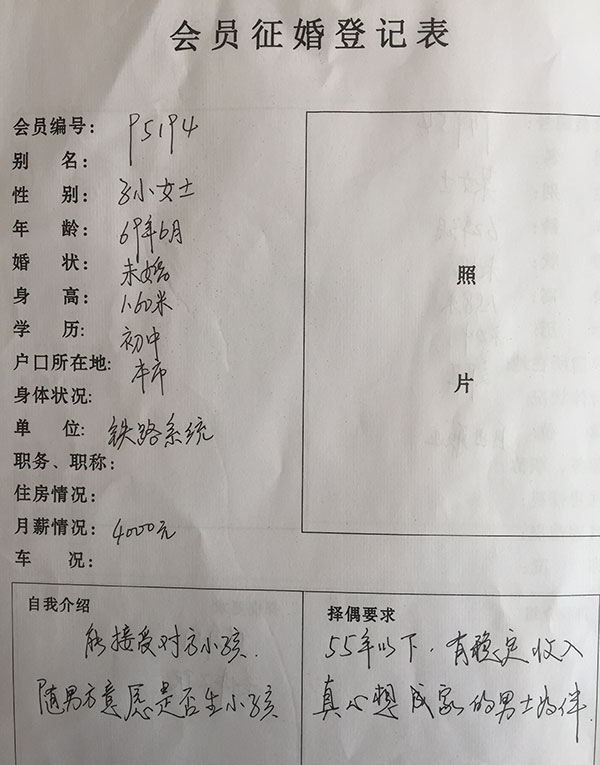 会员征婚登记表
会员编号: P5194
别 名:
性 别: 小女士
年 龄: 69年6月
婚 状: 未婚
身 高: 1.60米
学 历: 初中
户口所在地: 本市
身体状况:
单 位: 铁路系统
职务、职称:
住房情况:
月薪情况: 4000元
车 况:
照
片
自我介绍
能接受对方小孩.
随男方意愿是否生小孩
择偶要求
55年以下.有稳定收入
真心想成家的男士为伴.